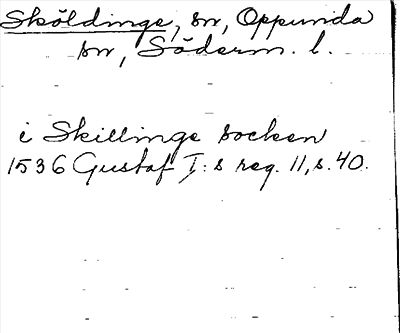 Sköldinge, sn, Oppunda
sn, Söderm. l.
i Skillinge socken
1536 Gustaf I:s reg. 11, s. 40.